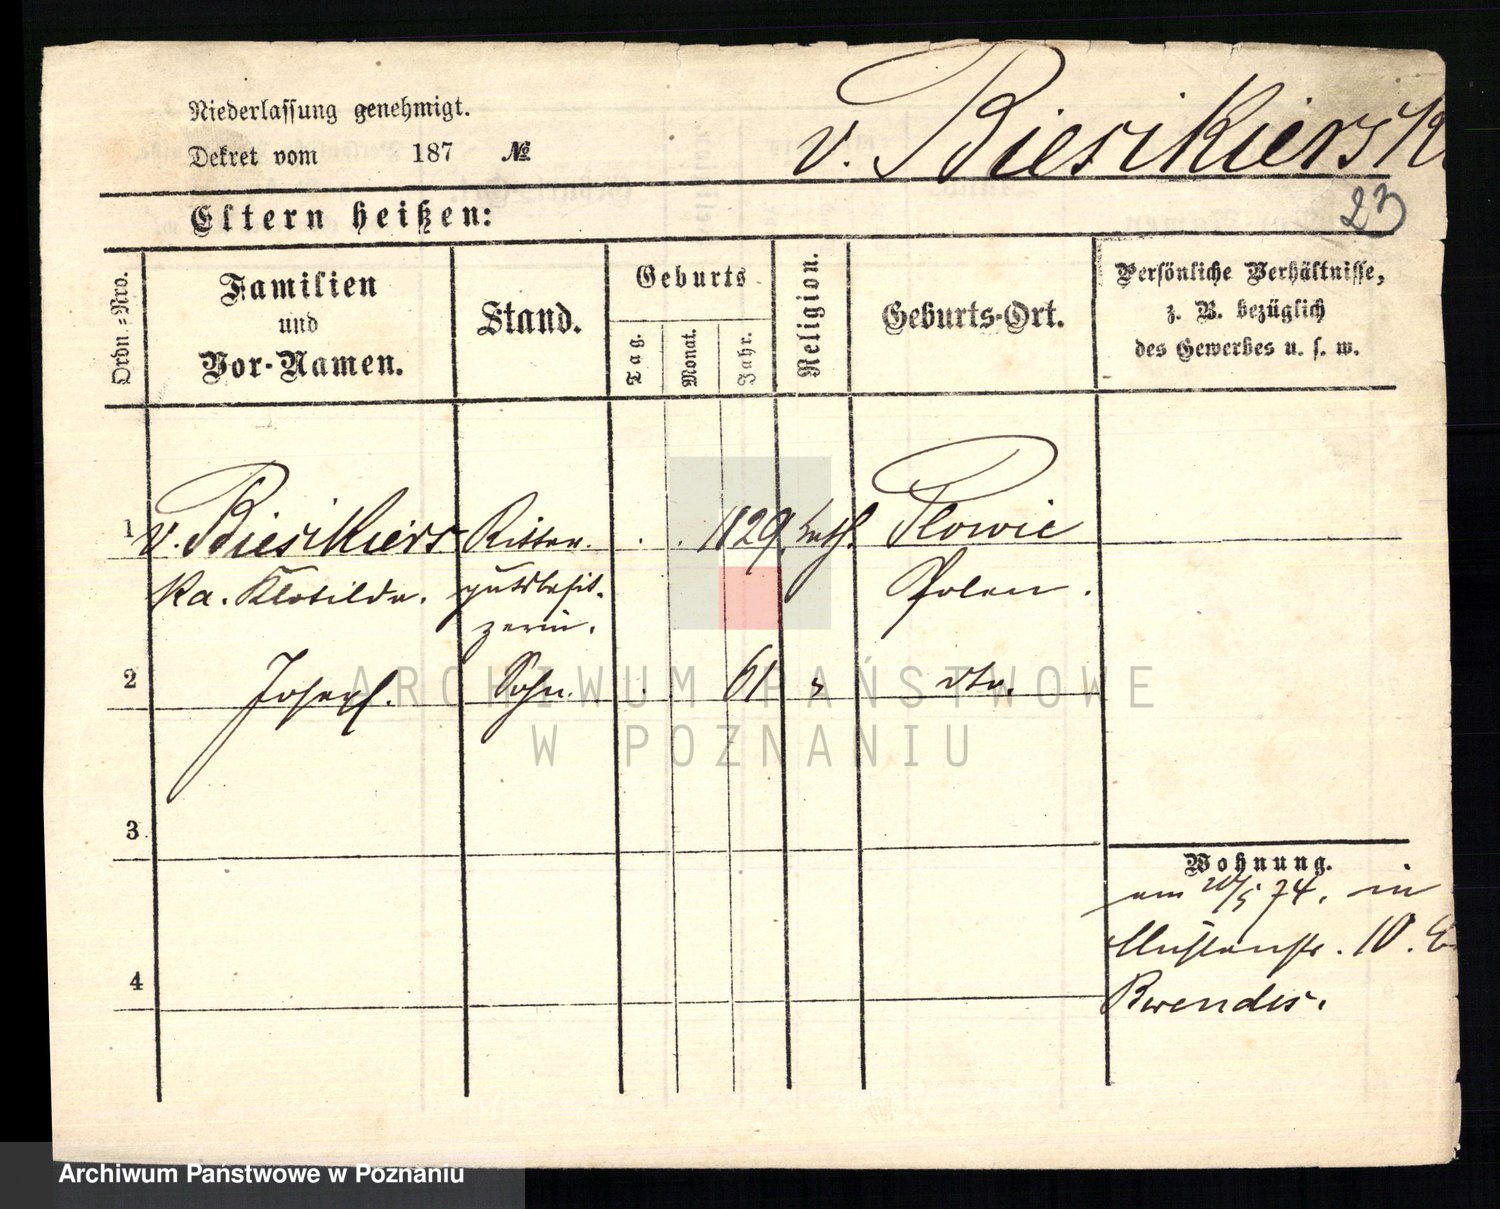 Niederlassung genehmigt.
Dekret vom 187 №
v. Biesikiersk
23
Eltern heißen:
Ordn.-Nro.
Familien
und
Vor-Namen.
Stand.
Geburts
Tag.
Monat.
Jahr.
Religion.
Geburts-Ort.
Persönliche Verhältnisse,
z. B. bezüglich
des Gewerbes u. s. w.
1 v. Biesikiers Ritter. 1829. kath. Plowie
ka. Klotilda. gutsbesit- Polen.
zerin.
2 Joseph. Sohn. 61 " dto.
3
4
Wohnung.
am 20/5 74. in
10.
Bwendes.
ARCHIWUM PAŃSTWOWE
W POZNANIU
Archiwum Państwowe w Poznaniu